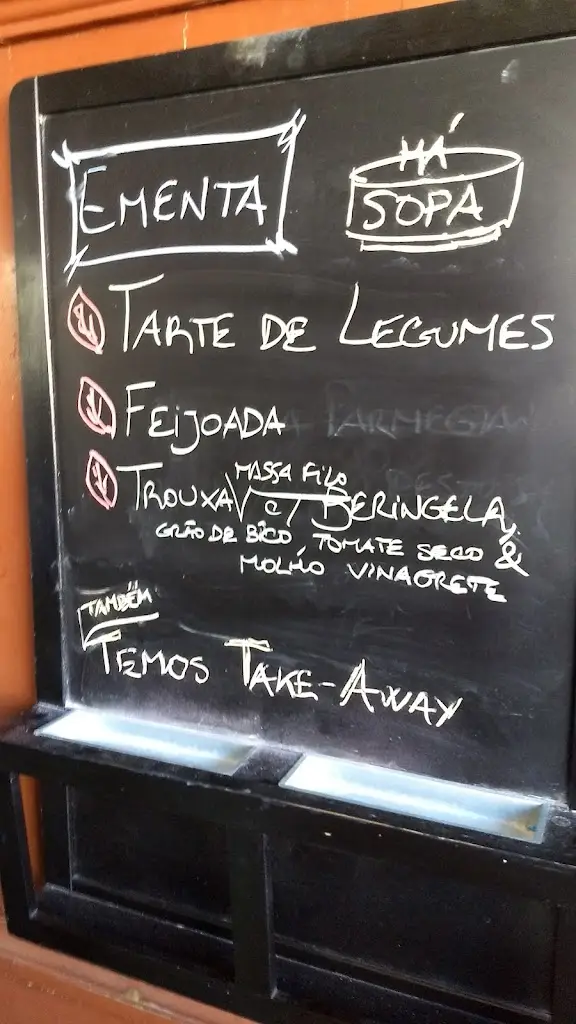 EMENTA
HÁ
SOPA
TARTE DE LEGUMES
FEIJOADA
MASSA FILO
TROUXA C/ BERINGELA,
GRÃO DE BICO, TOMATE SECO &
MOLHO VINAGRETE
TAMBÉM
TEMOS TAKE-AWAY